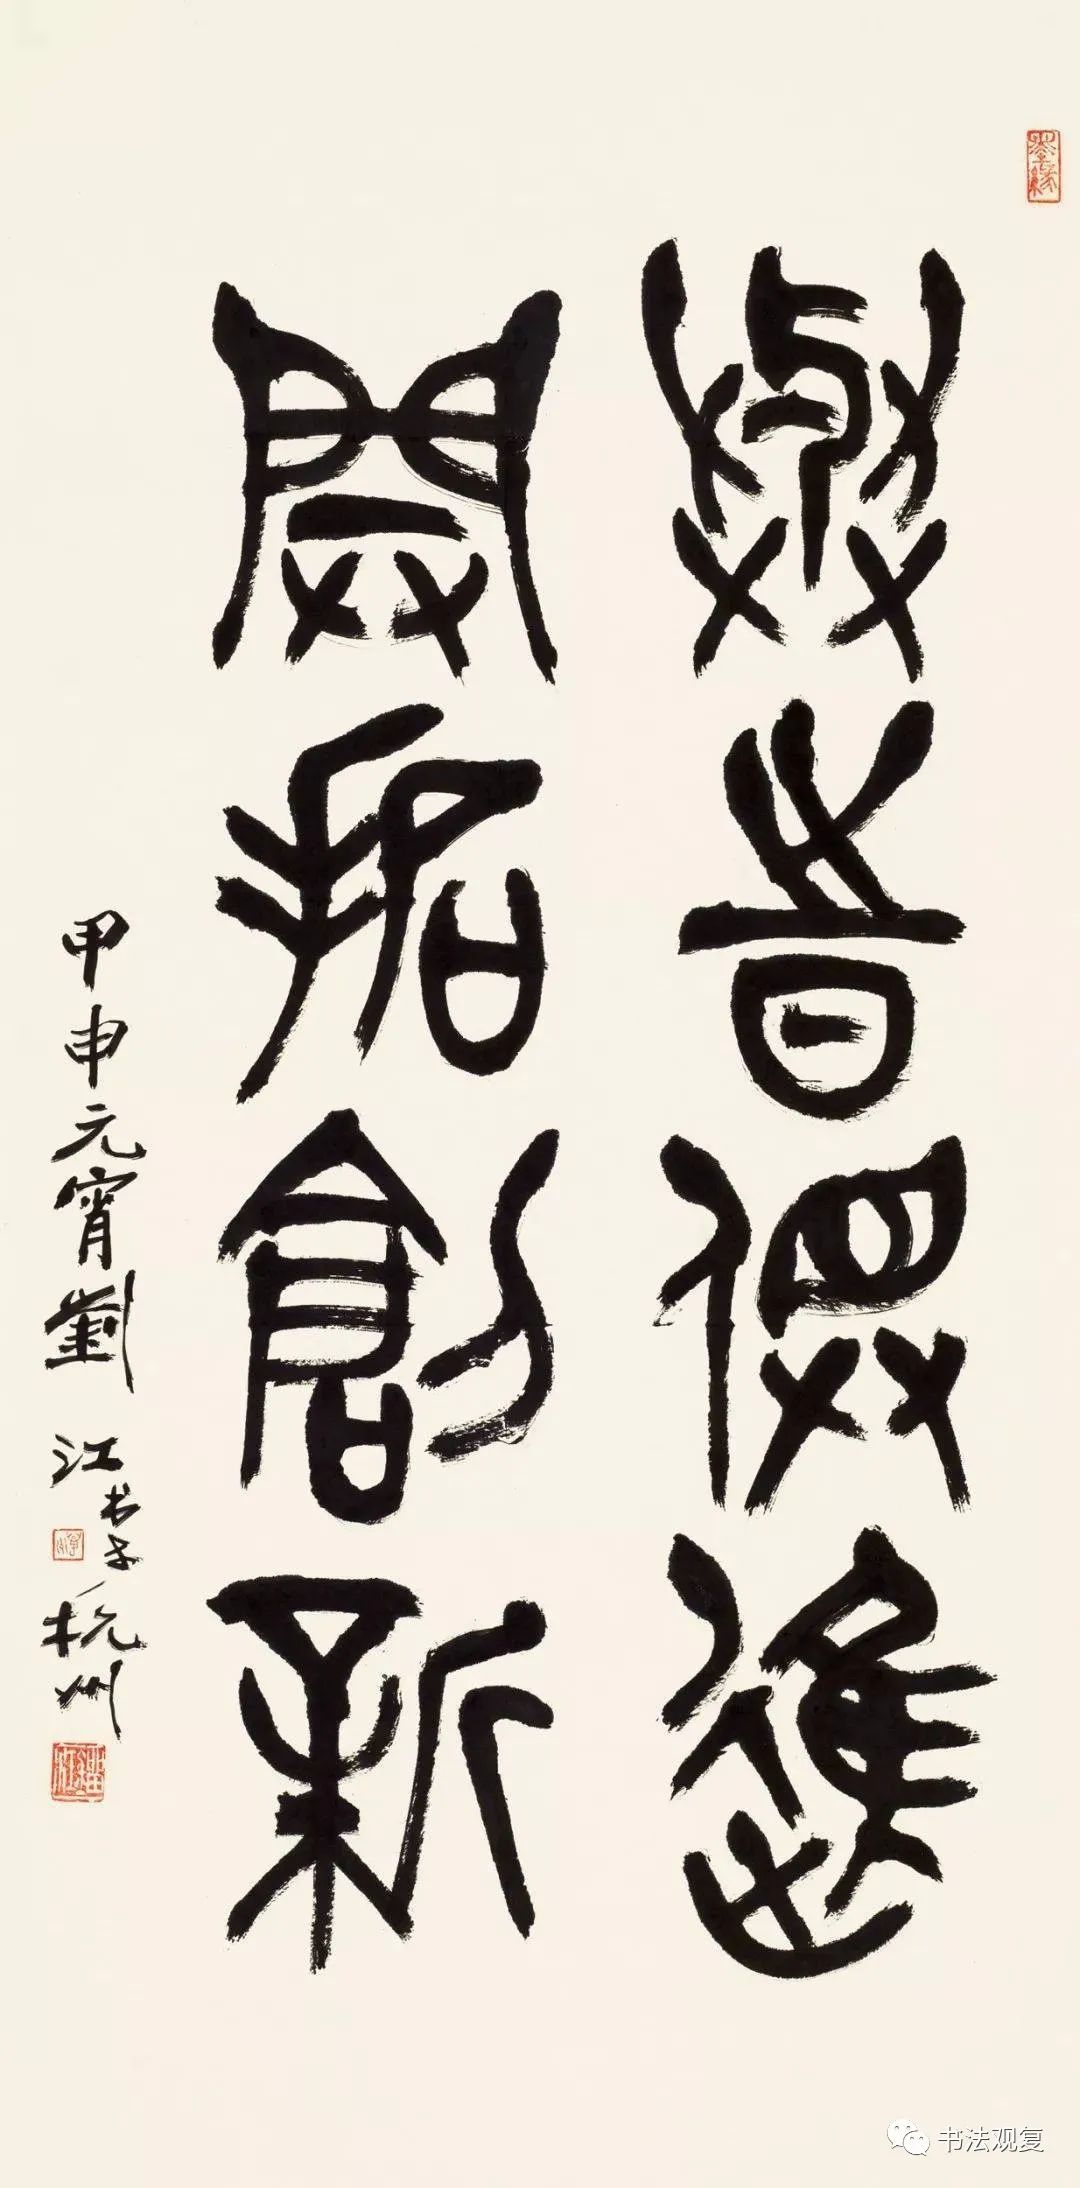 與時俱進
開拓創新
甲申元宵劉江书于杭州
书法观复